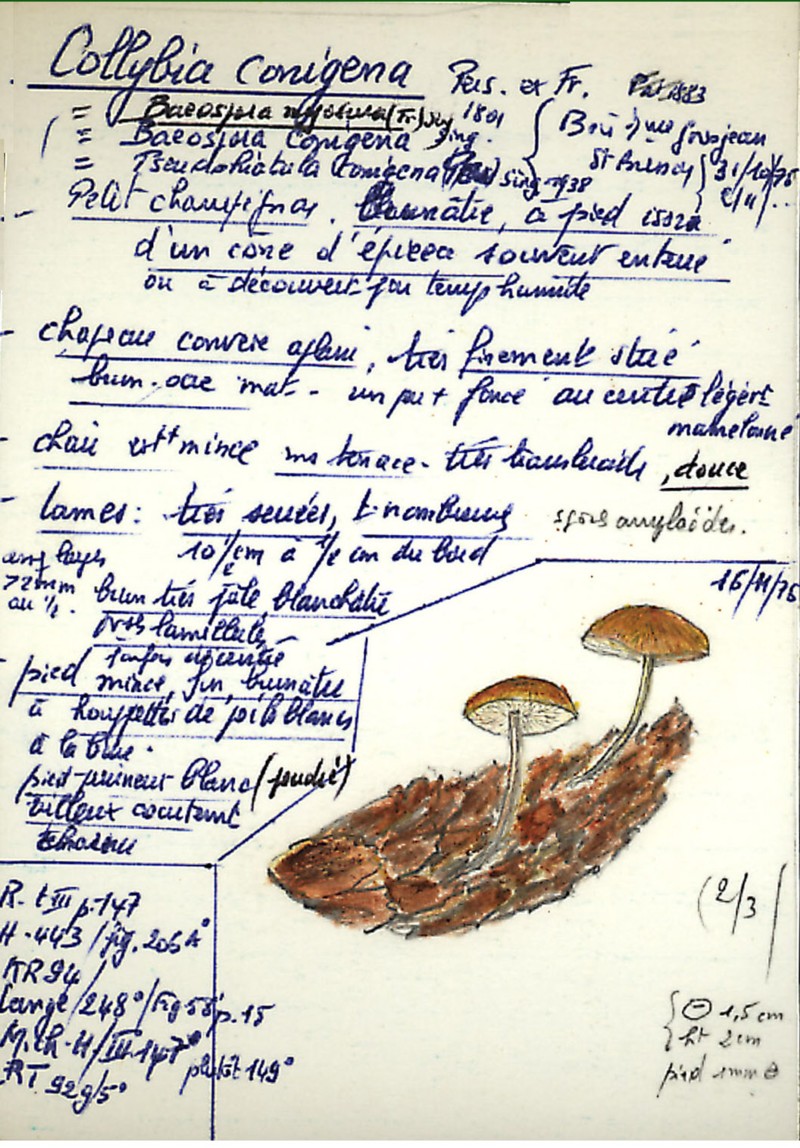 Collybia conigena Pers. ex Fr.
= Baeospora myosura (Fr.) Sing 1801
= Baeospora conigena Sing.
= Pseudohiatula conigena (Pers) Sing 1938
31/10/75
Petit champignon, brunâtre, à pied issu
d'un cône d'épicea souvent enterré
ou à découvert par temps humide
- chapeau convexe aplani, très finement strié
brun-ocre mat - un peu + foncé au centre légèrt
mamelonné
- chair estt mince ms tenace - très translucide, douce
- lames: très serrées, t. nombreuses spores amyloïdes.
10 1/2/cm à 1/2 cm du bord
>2mm
au 1/2.
16/11/75
brun très pâle blanchâtre
lamellules
- pied mince, fin, brunâtre
à houppettes de poils blancs
à la base.
pied blanc (poudré)
R. t III p. 147
H - 443 / fig. 206 A°
KR 94
Lange / 248° / Fig 58 p. 15
M. ch. H / III 147°
plutôt 149°
RT 929/5°
(2/3)
⊖ 1,5 cm
ht 2 cm
pied 1mm ⊖